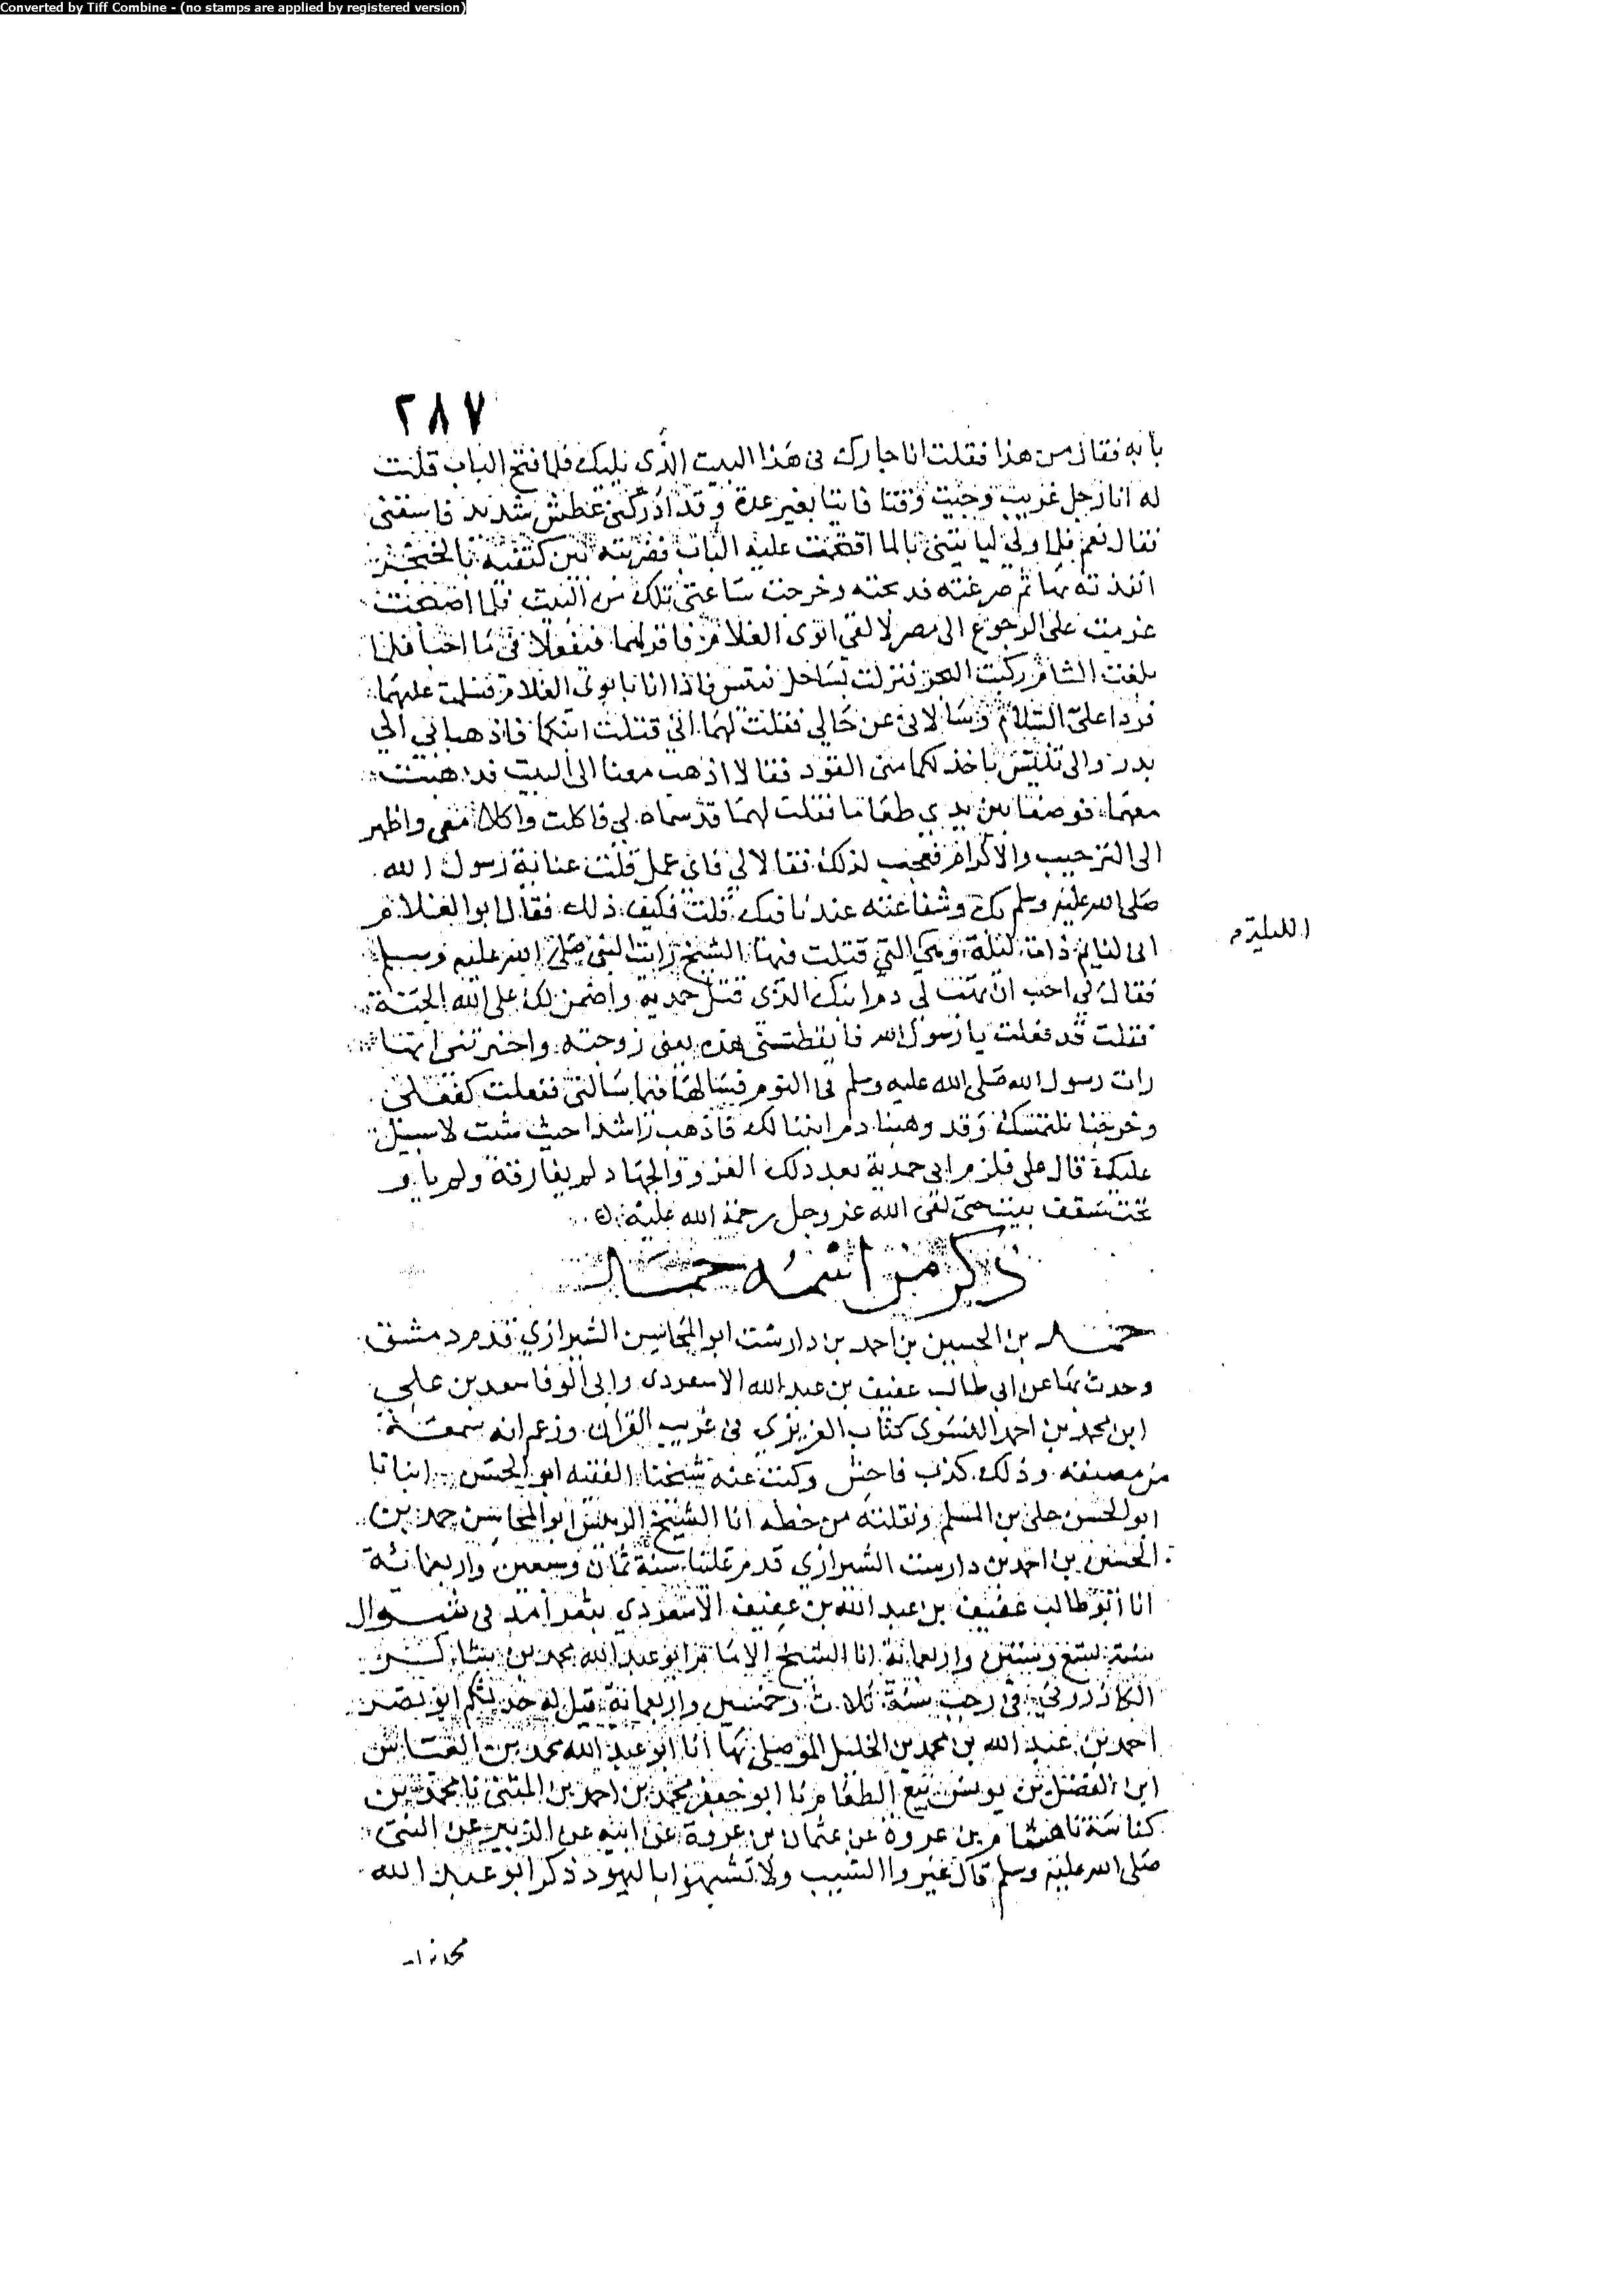 Converted by Tiff Combine - (no stamps are applied by registered version)
٢٨٧
بابه فقال من هذا فقلت انا جارك فى هذا البيت الذي يليك فلما فتح الباب قلت
له انا رجل غريب وجيت وقتا فايتا بغير عدة وقد ادركنى عطش شديد فاسقنى
فقال نعم فلما ولى لياتينى بالما اقتحمت عليه الباب فضربته بين كتفيه بالخنجر
انفذته بها ثم صرعته فذبحته وخرجت ساعتى تلك من البيت فلما اصبحت
عزمت على الرجوع الى مصر لالقى ابوى الغلام فاقد لهما فيفعلا فى ما احبا فلما
بلغت الشام ركبت البحر فنزلت بساحل تنيس فاذا انا بابوى الغلام فسلمت عليهما
فردا على السلام وسالانى عن حالي فقلت لهما انى قتلت ابنكما فاذهبا بي الي
بدر والى تنيس ياخذ لكما منى القود فقالا اذهب معنا الى البيت فذهبت
معهما فوضعا بين يدي طعاما فقلت لهما قد سماه لي فاكلت واكلا معى واظهر
الى الترحيب والاكرام فعجبت لذلك فقالا لي فاى عمل قلت عناية رسول الله
صلى الله عليه وسلم بك وشفاعته عندنا فيك قلت فكيف ذلك فقال ابو الغلام
انى لنايم ذات ليلة وهي التي قتلت فيها الشيخ رايت النبى صلى الله عليه وسلم
فقال لي احب ان تهب لي دم ابنك الذي قتله حمدية واضمن لك على الله الجنة
فقلت قد فعلت يا رسول الله فايقظتنى هذه يعنى زوجته واخبرتنى انها
رات رسول الله صلى الله عليه وسلم فى النوم فسالها فيما سالنى ففعلت كفعلى
وخرجنا نلتمسك وقد وهبنا دم ابننا لك فاذهب راشدا حيث شيت لا سبيل
عليك قال على فلزم ابى حمدية بعد ذلك الغزو والجهاد لم يفارقه ولم ياو
تحت سقف بيت حتى لقى الله عز وجل رحمة الله عليه
ذكر من اسمه حمد
حمد بن الحسين بن احمد بن دارست ابو المحاسن الشيرازي قدم دمشق
وحدث بها عن ابى طالب عفيف بن عبد الله الاسعردى وابى الوفا سعد بن علي
ابن محمد بن احمد النسوى كتاب العزيزي فى غريب القران وزعم انه سمعه
من مصنفه وذلك كذب فاحش وكتب عنه شيخنا الفقيه ابو الحسن انبانا
ابو الحسن على بن المسلم ونقلته من خطه انا الشيخ الرييس ابو المحاسن حمد بن
الحسين بن احمد بن دارست الشيرازي قدم علينا سنة ثمان وسبعين واربعمائة
انا ابو طالب عفيف بن عبد الله بن عفيف الاسعردي بثغر امد فى شوال
سنة تسع وستين واربعمائة انا الشيخ الامام ابو عبد الله محمد بن
الكازرونى فى رجب سنة ثلاث وخمسين واربعمائة قيل له حدثكم ابو نصر
احمد بن عبد الله بن محمد بن الخليل الموصلى بها انا ابو عبد الله محمد بن العباس
ابن الفضل بن يونس بيع الطعام نا ابو جعفر محمد بن احمد بن المثنى نا محمد بن
كناسة نا هشام بن عروة عن عثمان بن عروة عن ابيه عن الزبير عن النبى
صلى الله عليه وسلم قال غيروا الشيب ولا تشبهوا باليهود ذكر ابو عبد الله